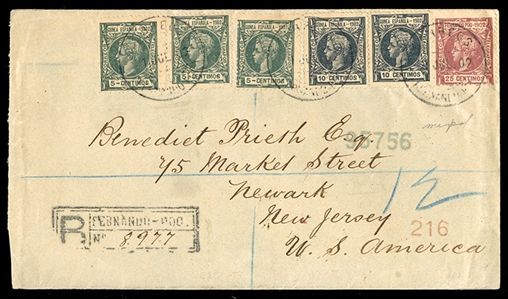 GUINEA ESPAÑOLA-1902 GUINEA ESPAÑOLA-1902 GUINEA ESPAÑOLA-1902 GUINEA ESPAÑOLA-1902 GUINEA ESPAÑOLA-1902
5-CENTIMOS 5-CENTIMOS 5-CENTIMOS 10 CENTIMOS 10 CENTIMOS 25 CENTIMOS
Benedict Priesh Esq.
35756
75 Market Street
Newark
12
New Jersey
216
U. S. America
R
FERNANDO-POO
No 8977